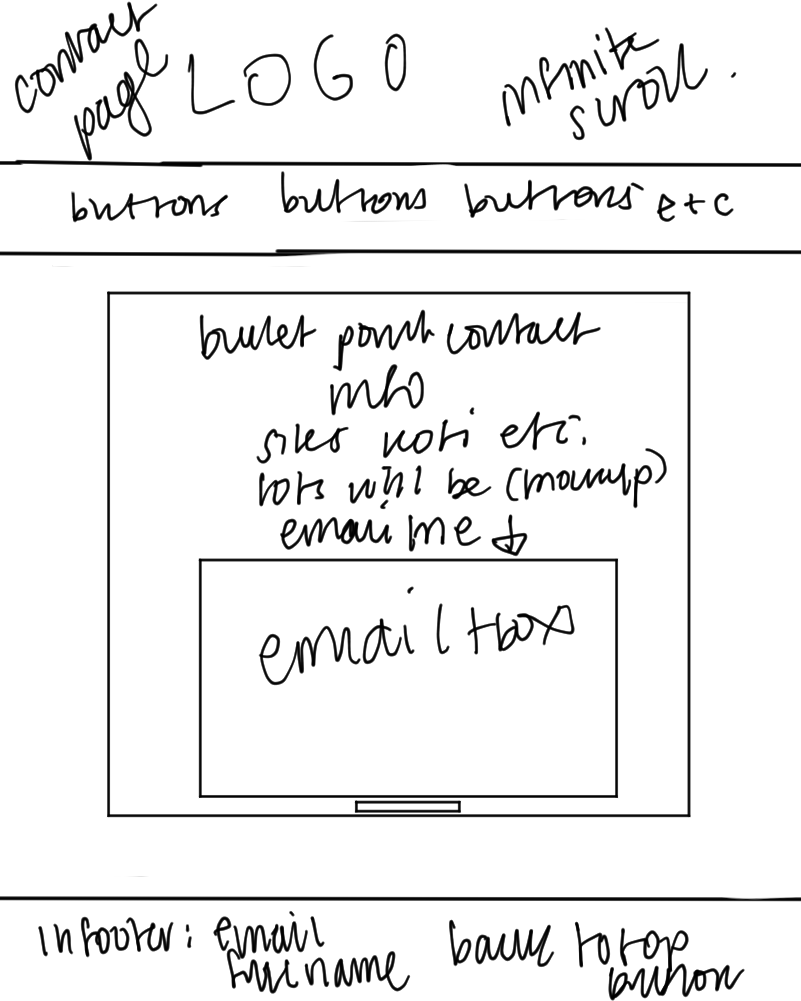 contact
page
LOGO
infinite
scroll.
buttons buttons buttons etc
bullet point contact
info
etc.
lots will be (mockup)
email me ↓
email tbox
in footer: email
full name
back to top
button